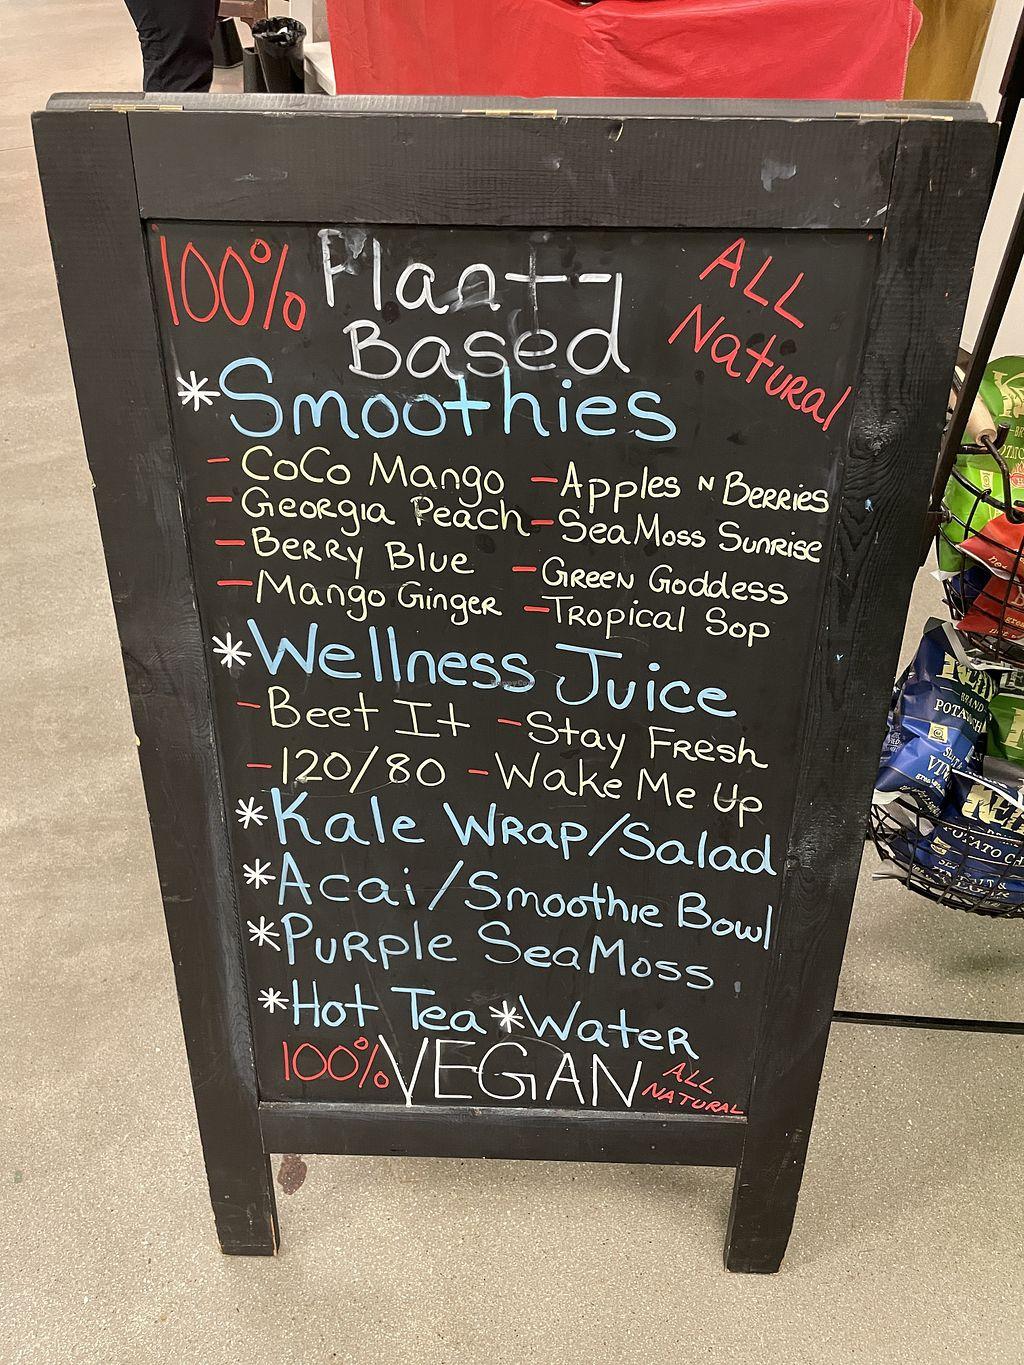 100% Plant-
Based
ALL
Natural
*Smoothies
- CoCo Mango - Apples N Berries
- Georgia Peach - SeaMoss Sunrise
- Berry Blue - Green Goddess
- Mango Ginger - Tropical Sop
*Wellness Juice
- Beet It - Stay Fresh
- 120/80 - Wake Me Up
*Kale Wrap/Salad
*Acai/Smoothie Bowl
*Purple SeaMoss
*Hot Tea *Water
100% VEGAN ALL
NATURAL
BRAND